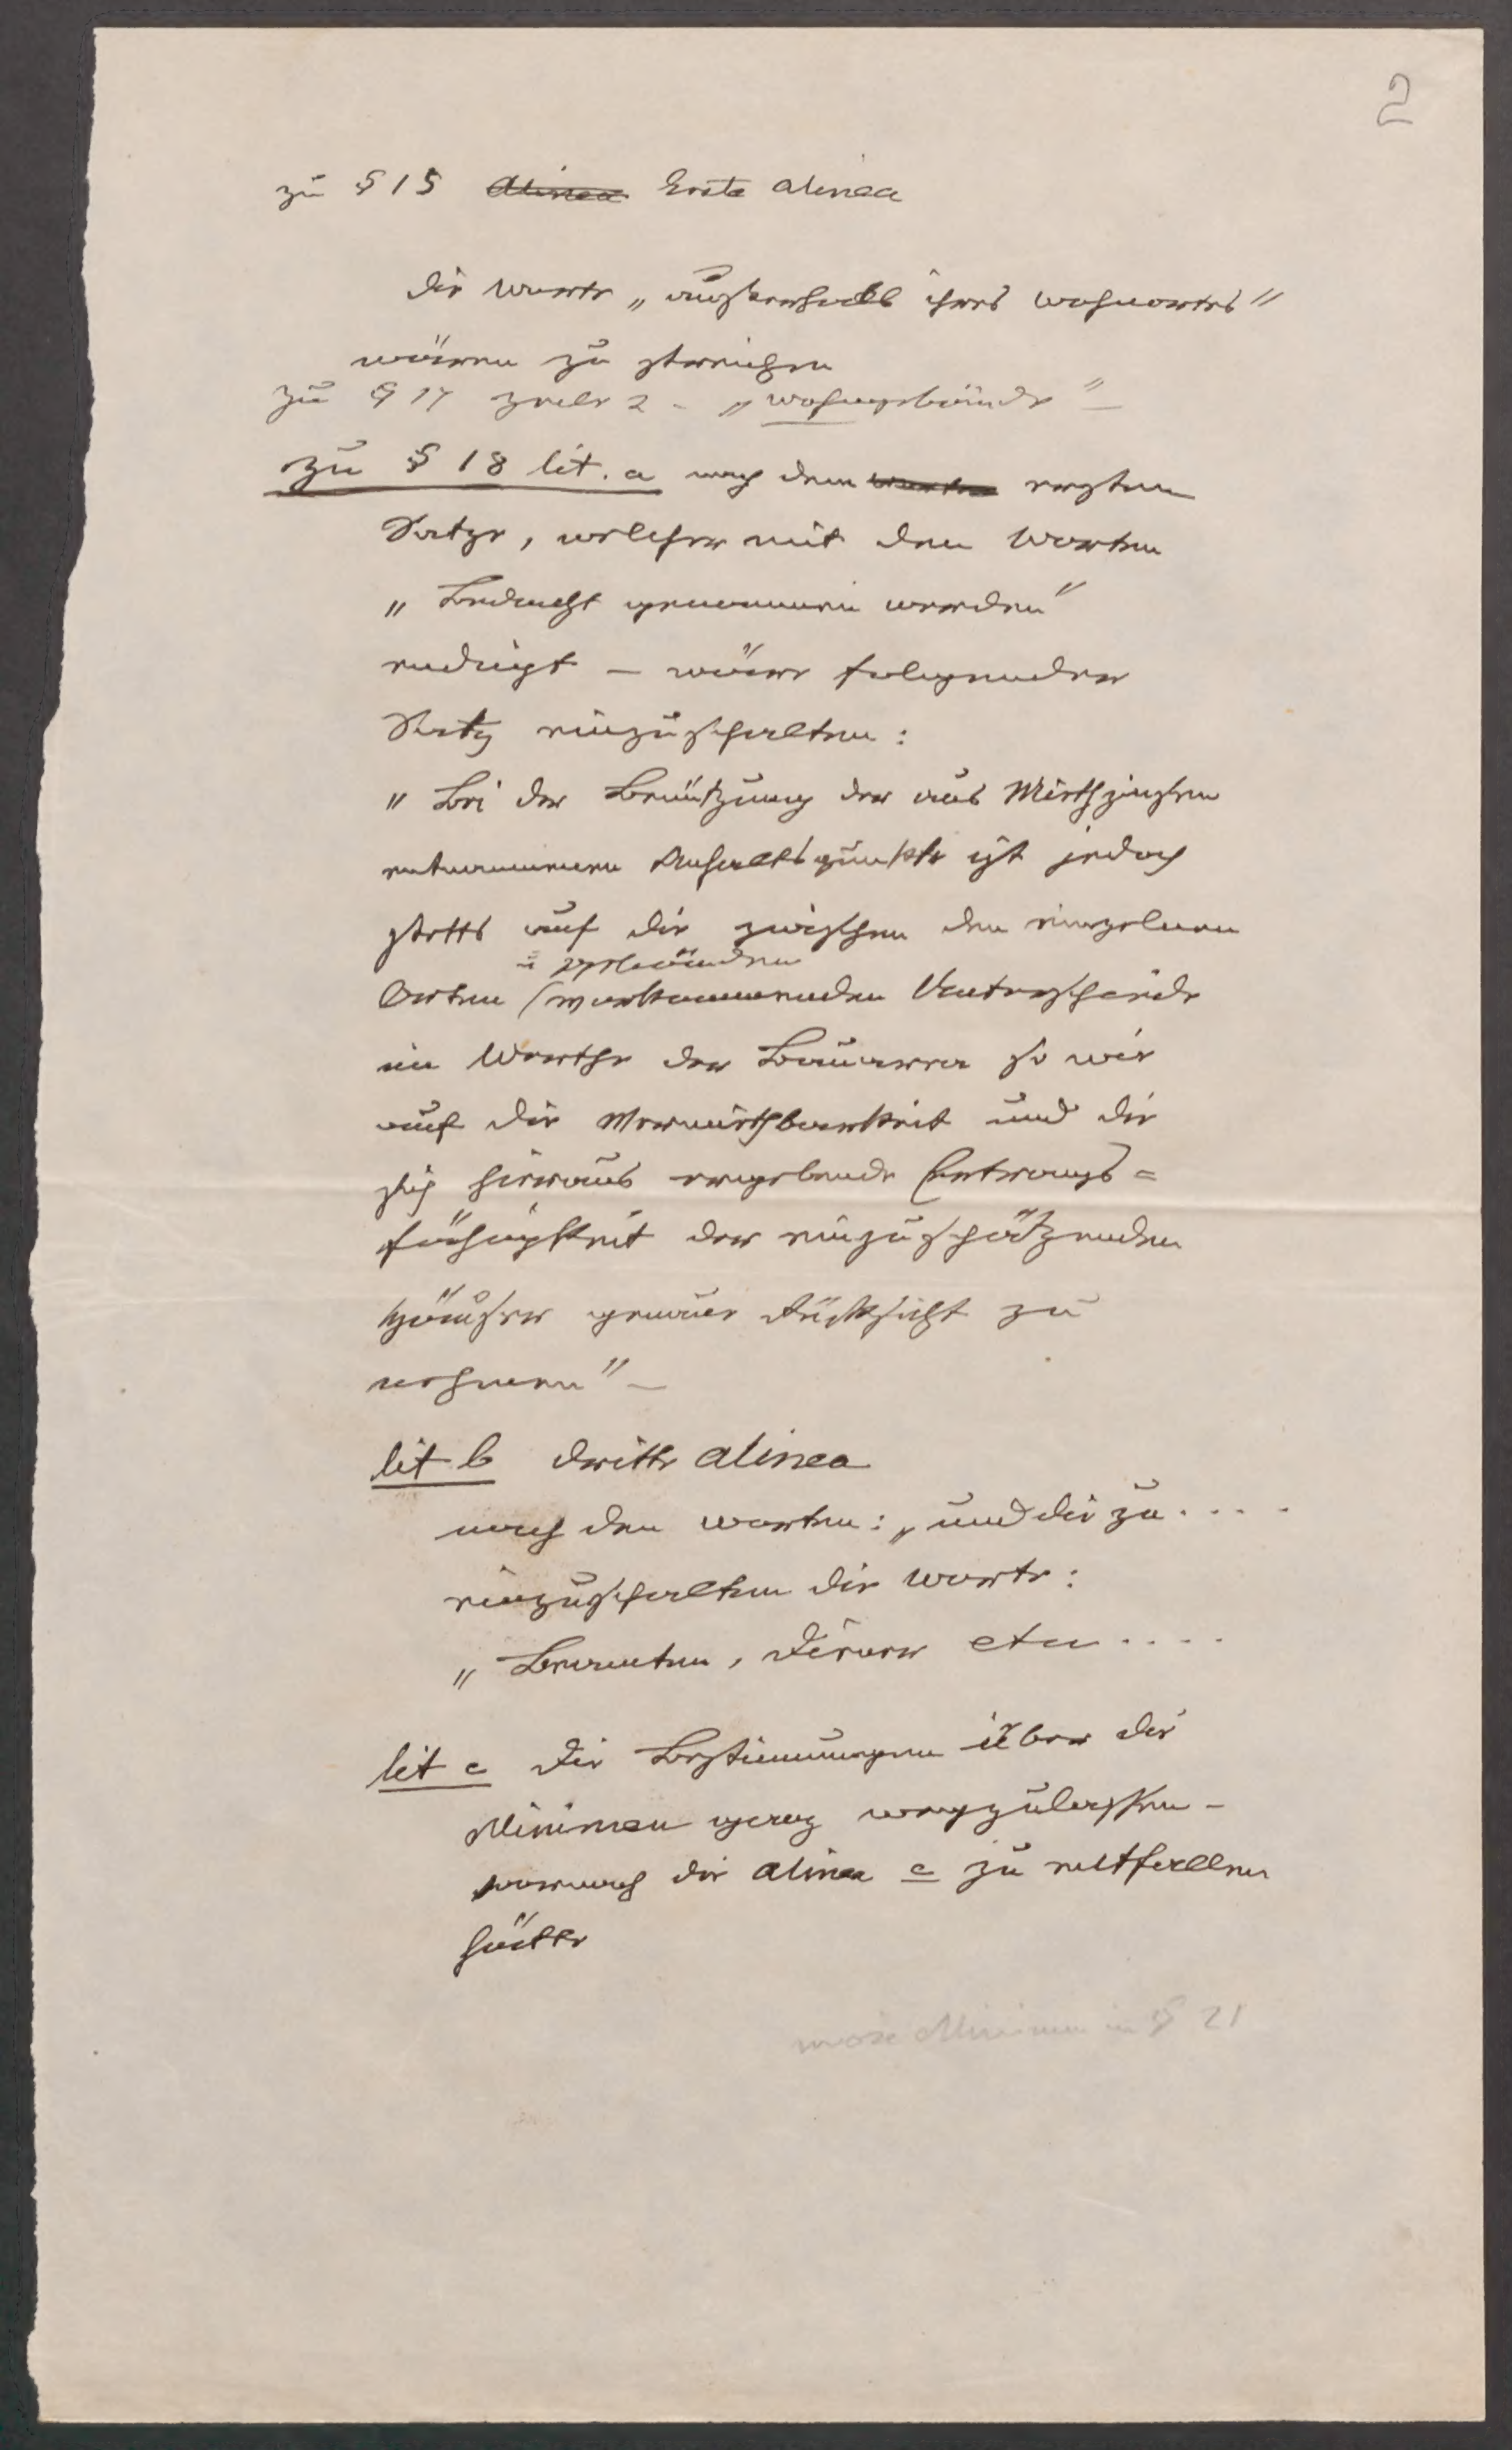 2
zu § 15 Alinea Erste Alinea
die Worte „außerhalb ihres Wohnortes"
wären zu streichen
zu § 17 Zeile 2 - „Wohngebäude" -
zu § 18 lit. a nach dem Worten ersten
Satze, welcher mit den Worten
„Bedacht genommen werden"
endigt – wäre folgender
Satz einzuschalten:
„Bei der Benützung der aus Miethzinsen
entnommenen Anhaltspunkte ist jedoch
stets auf die zwischen den einzelnen
u Gebäuden
Orten (vorkommenden Unterschiede
im Werthe der Bauarea so wie
auf die Vermiethbarkeit und die
sich hieraus ergebende Ertrags=
fähigkeit der einzuschätzenden
Häuser genaue Rücksicht zu
nehmen" –
lit b dritte Alinea
nach den Worten: „und die zu . . . .
einzuschalten die Worte:
„Beamten, Diener etc . . . .
lit c Die Bestimmungen über die
Minimen ganz wegzulassen -
wornach die Alinea c zu entfallen
hätte
Minimum in § 21